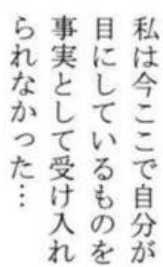 私は今ここで自分が
目にしているものを
事実として受け入れ
られなかった…